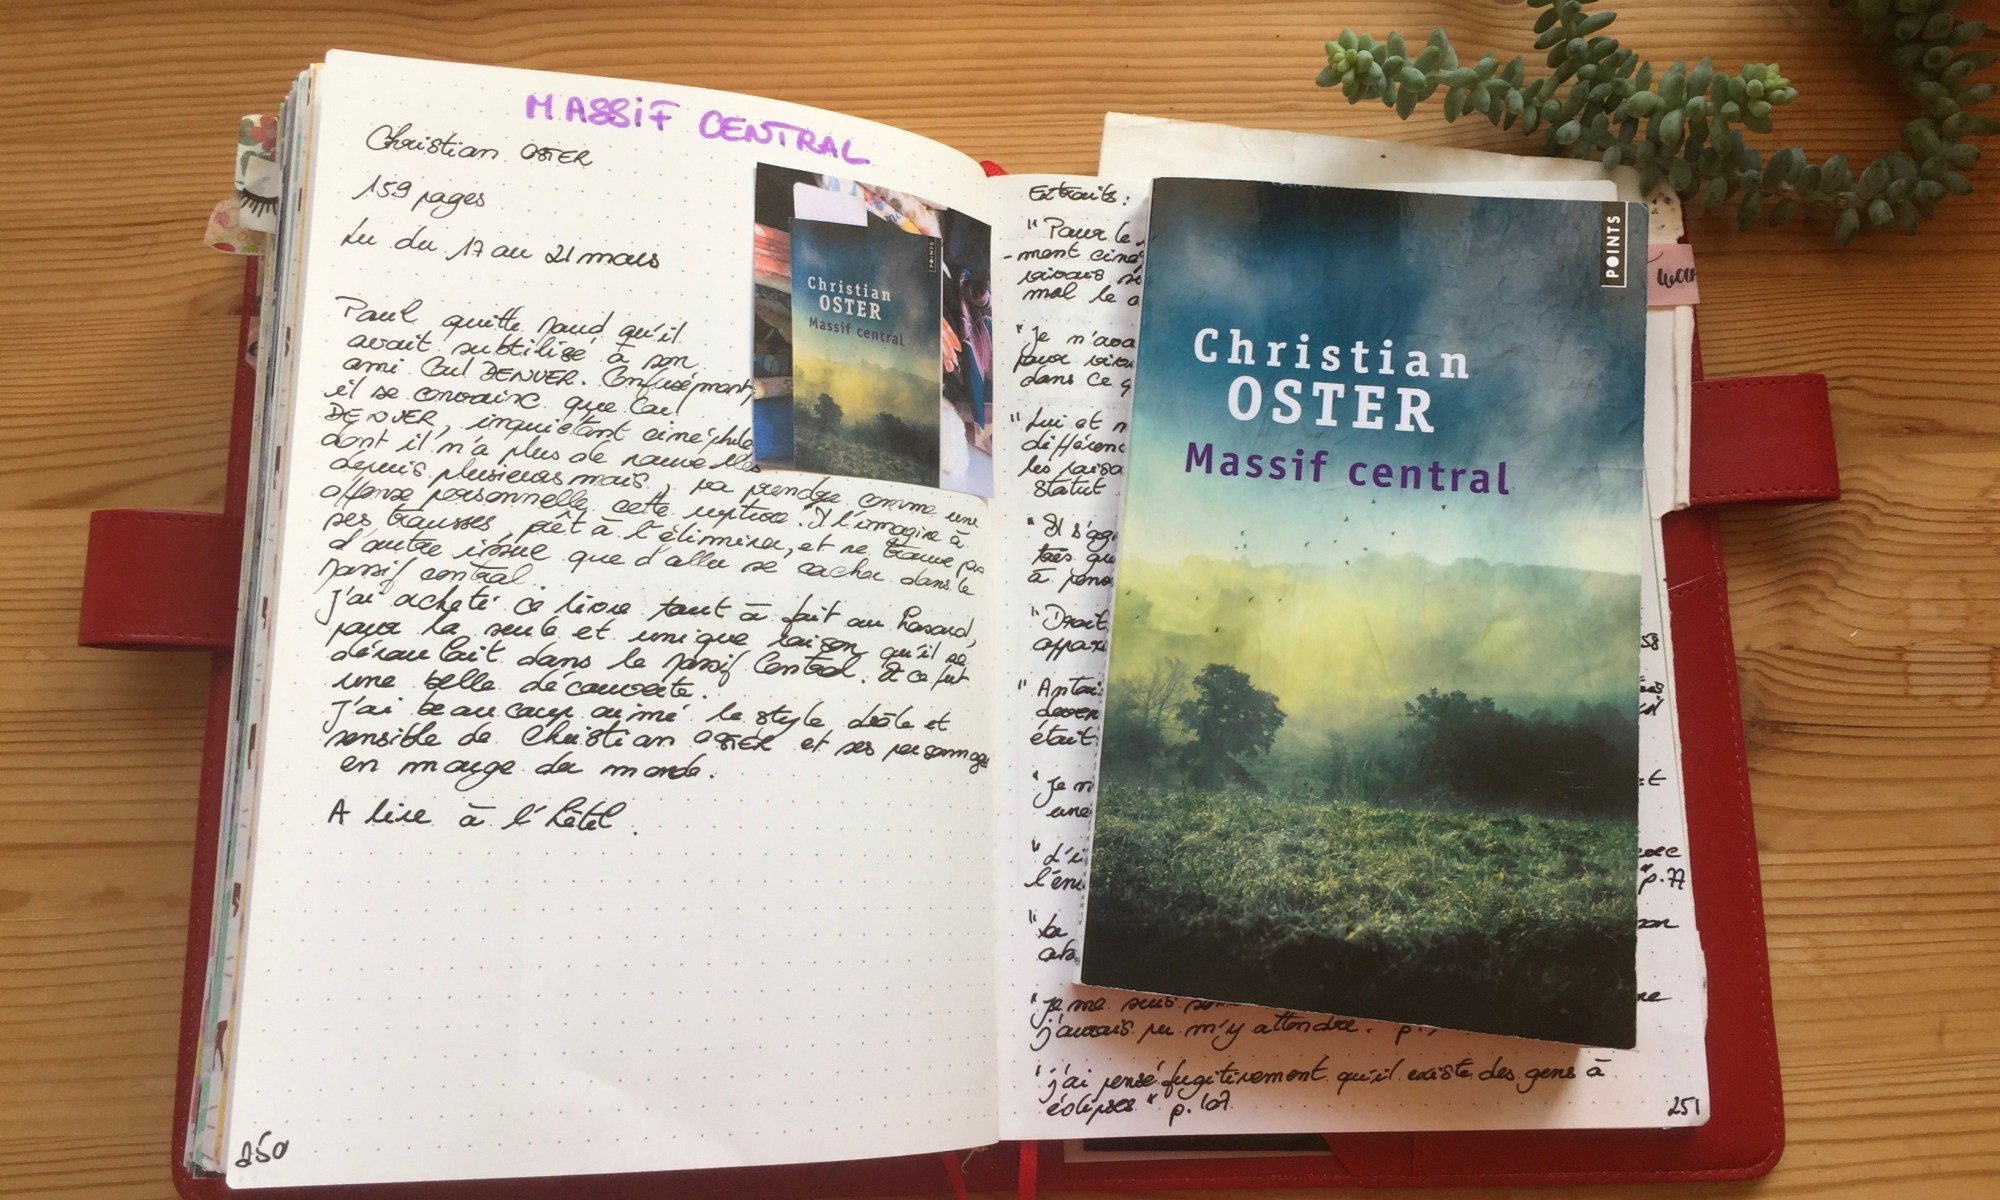 MASSiF CENTRAL
Christian OSTER
159 pages
Lu du 17 au 21 mars
Paul quitte Maud qu'il
avait subtilisé à son
ami Carl DENVER. Confusément,
il se convainc que Carl
DENVER, inquiétant cinéphile
dont il n'a plus de nouvelles
depuis plusieurs mois, va prendre comme une
offense personnelle cette rupture. Il l'imagine à
ses trousses, prêt à l'éliminer, et ne trouve pas
d'autre issue que d'aller se cacher dans le
Massif central.
J'ai acheté ce livre tout à fait au hasard,
pour la seule et unique raison qu'il se
déroulait dans le Massif Central. Et ce fut
une belle découverte.
J'ai beaucoup aimé le style drôle et
sensible de Christian OSTER et ses personnages
en marge du monde.
A lire à l'hôtel.
250
Christian
OSTER
Massif central
POINTS
Extraits :
"Pour le
-ment ciné
mal le
"Je n'ava
pour
dans ce q
"Lui et
différenc
les
statut
"Il s'agi
très que
à
"Droit
appa
"Antoi
était
"Je
une
"d'
l'en
"
"je me suis
j'aurais pu m'y attendre. p.
"j'ai pensé fugitivement qu'il existe des gens à
éclipses" p. 107
58
p. 77
251
POINTS
Christian
OSTER
Massif central